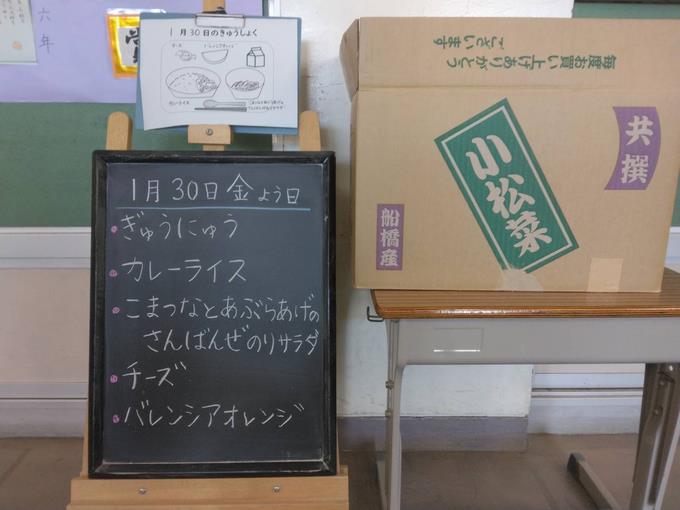 六年
1月30日のきゅうしょく
チーズ
バレンシアオレンジ
カレーライス
1月30日金よう日
ぎゅうにゅう
カレーライス
こまつなとあぶらあげの
さんばんぜのりサラダ
チーズ
バレンシアオレンジ
毎度お買い上げありがとう
ございます
小松菜
共撰
船橋産